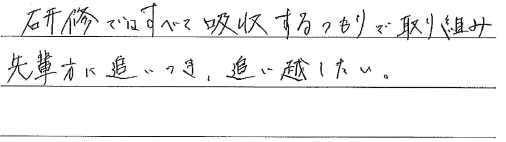 研修ではすべて吸収するつもりで取り組み
先輩方に追いつき、追い越したい。